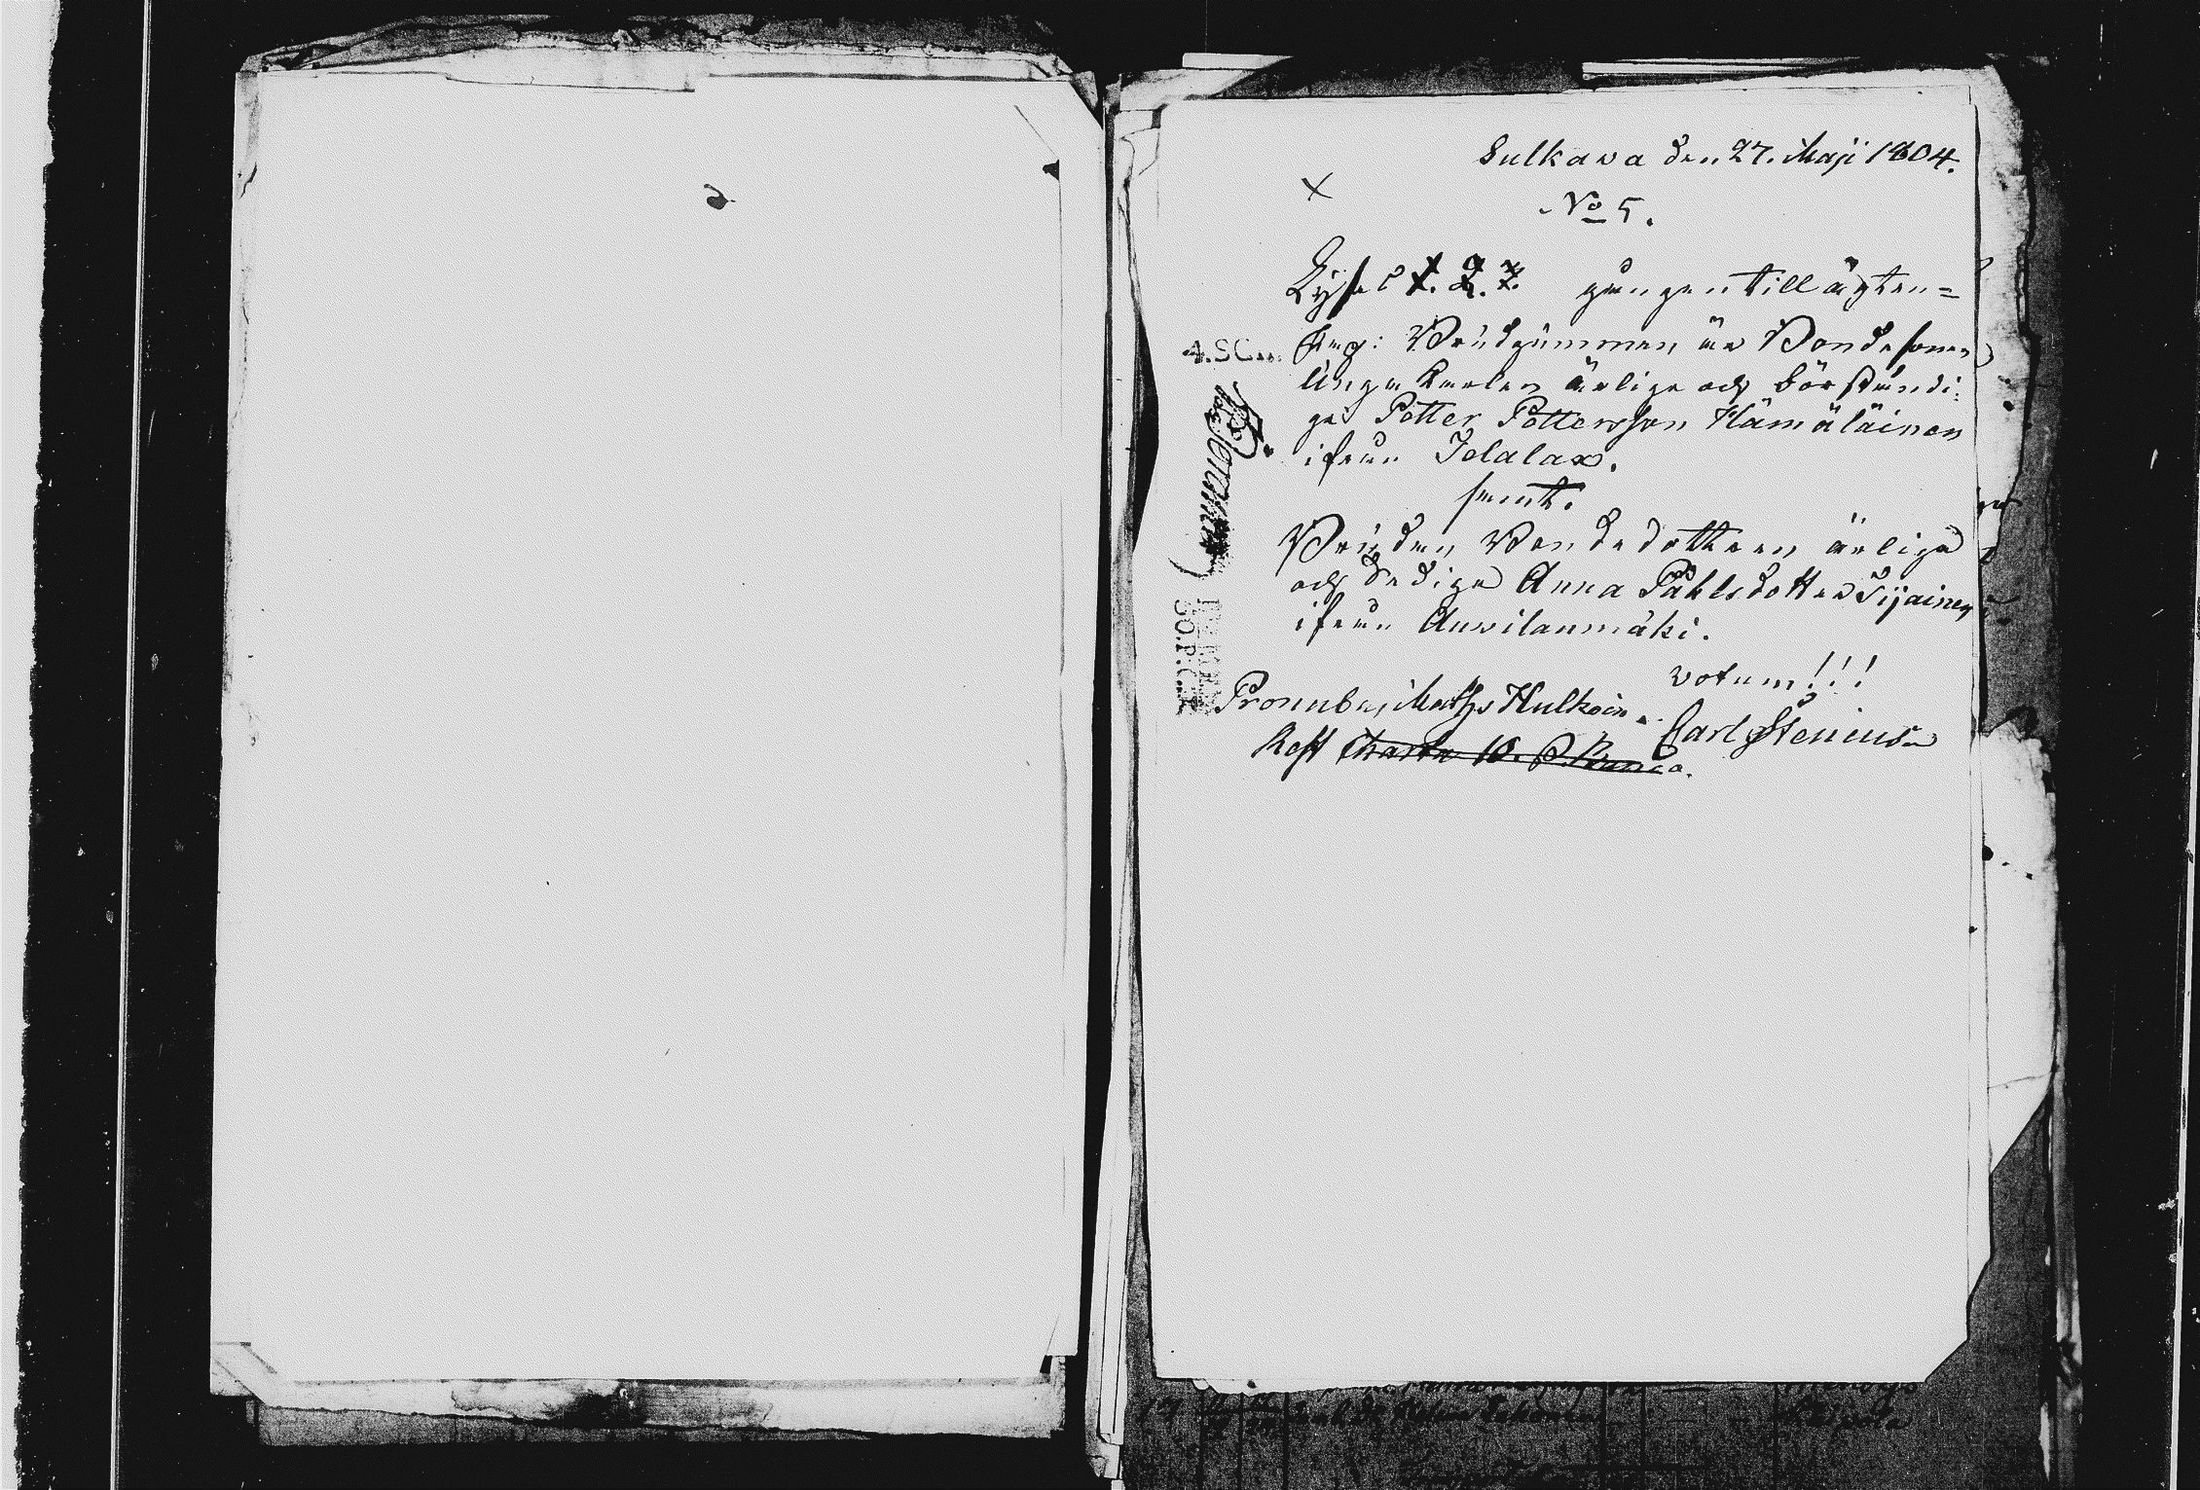 Sulkava den 27. Maji 1804.
No 5.
Lyses 1. 2. 3. gången till ägten-
skap: Brudgummen är Bondesonen
unga Karlen ärlige och Förståndi-
ge Petter Pettersson Hämäläinen
ifrån Idlalax.
samt.
Bruden Bondedottren ärliga
och Sediga Anna Påhlsdotter Tijainen
ifrån Auvilanmäki.
votum!!!
Pronuba, Maths Hulkoin.
Carl Stenius
Rest Charta 10.
4.SC
30.P:C: